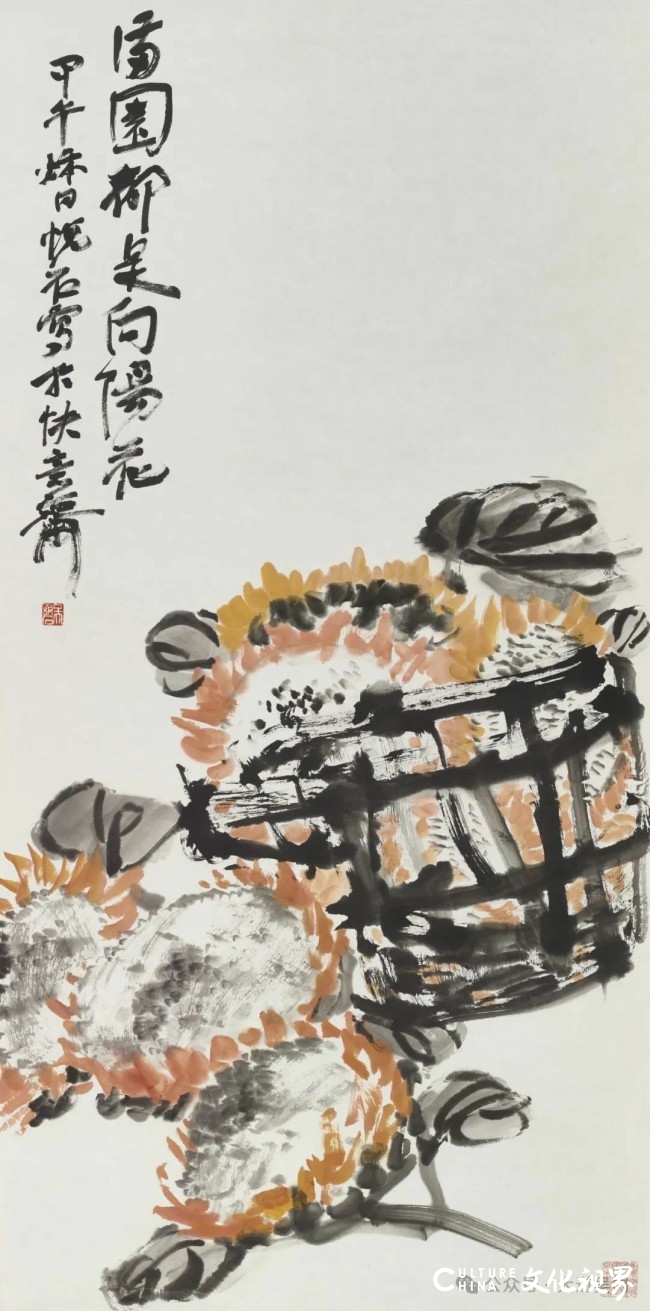 满園都是向陽花
甲午烁日悦石寫於快意齋
CULTURE
CHINA
文化視界
公众号